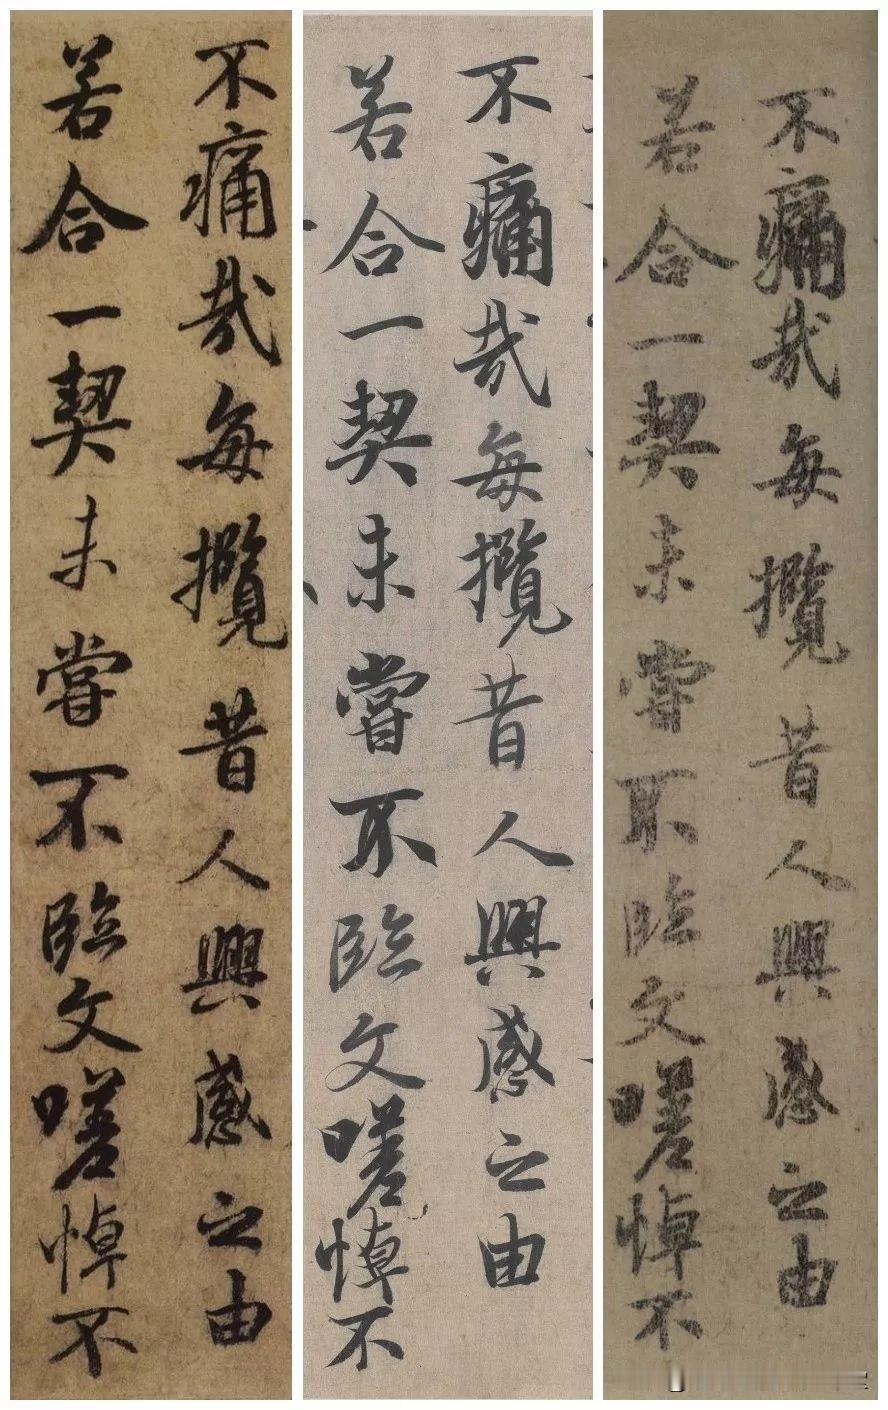 不痛哉每攬昔人興感之由
若合一契未嘗不臨文嗟悼不
不痛哉每攬昔人興感之由
若合一契未嘗不臨文嗟悼不
不痛哉每攬昔人興感之由
若合一契未嘗不臨文嗟悼不